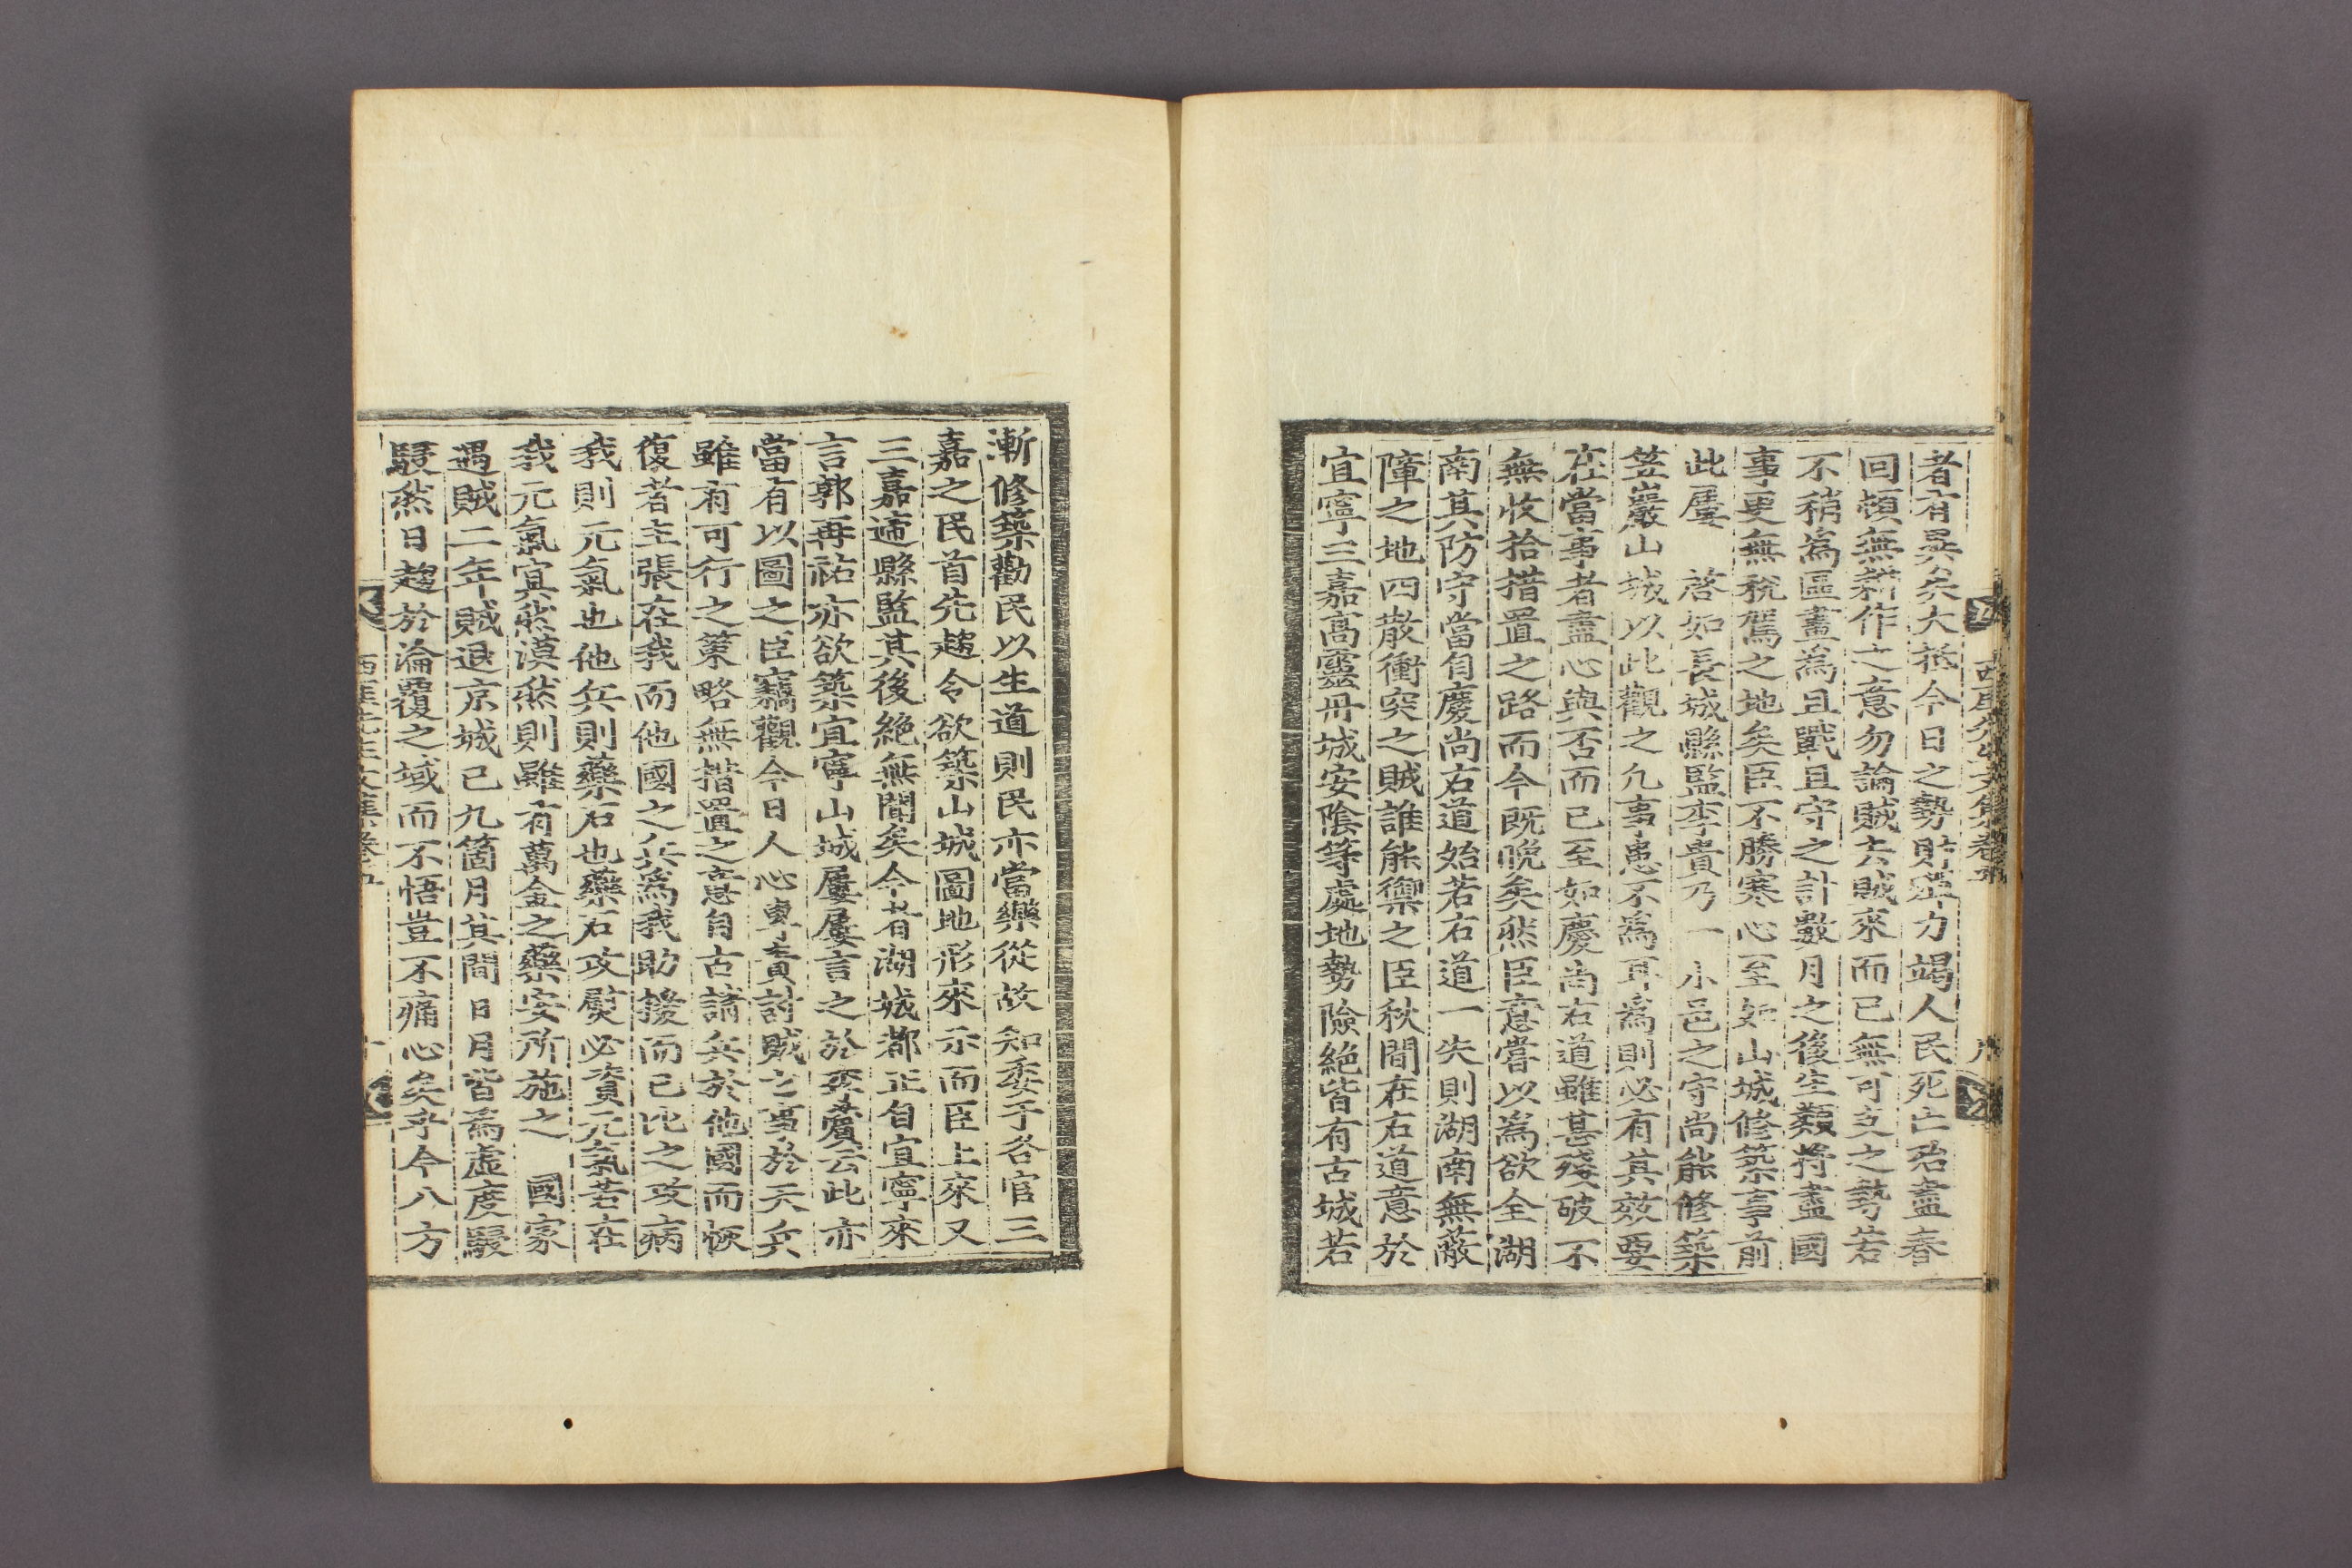 西厓先生文集卷
者有異矣大抵今日之勢財殫力竭人民死亡殆盡春
回頓無耕作之意勿論賊去賊來而已無可支之勢若
不稍爲區畫爲且戰且守之計數月之後生類將盡國
事更無稅駕之地矣臣不勝寒心至如山城修築事前
此屢 啓如長城縣監李貴乃一小邑之守尚能修築
笠巖山城以此觀之凡事患不爲耳爲則必有其效要
在當事者盡心與否而已至如慶尚右道雖甚殘破不
無收拾措置之路而今既晩矣然臣意嘗以爲欲全湖
南其防守當自慶尚右道始若右道一失則湖南無蔽
障之地四散衝突之賊誰能禦之臣秋間在右道意於
宜寧三嘉高靈丹城安陰等處地勢險絶皆有古城若
漸修築勸民以生道則民亦當樂從故知委于各官三
嘉之民首先趨令欲築山城圖地形來示而臣上來又
三嘉適縣監其後絶無聞矣今者湖城都正自宜寧來
言郭再祐亦欲築宜寧山城屢屢言之於賓廳云此亦
當有以圖之臣竊觀今日人心專責討賊之事於天兵
雖有可行之策略無措置之意自古請兵於他國而恢
復者主張在我而他國之兵爲我助援而已比之攻病
我則元氣也他兵則藥石也藥石攻熨必資元氣若在
我元氣寞然漠然則雖有萬金之藥安所施之 國家
遇賊二年賊退京城已九箇月其間日月皆爲虛度駸
駸然日趨於淪覆之域而不悟豈不痛心矣乎今八方
西厓先生文集卷五